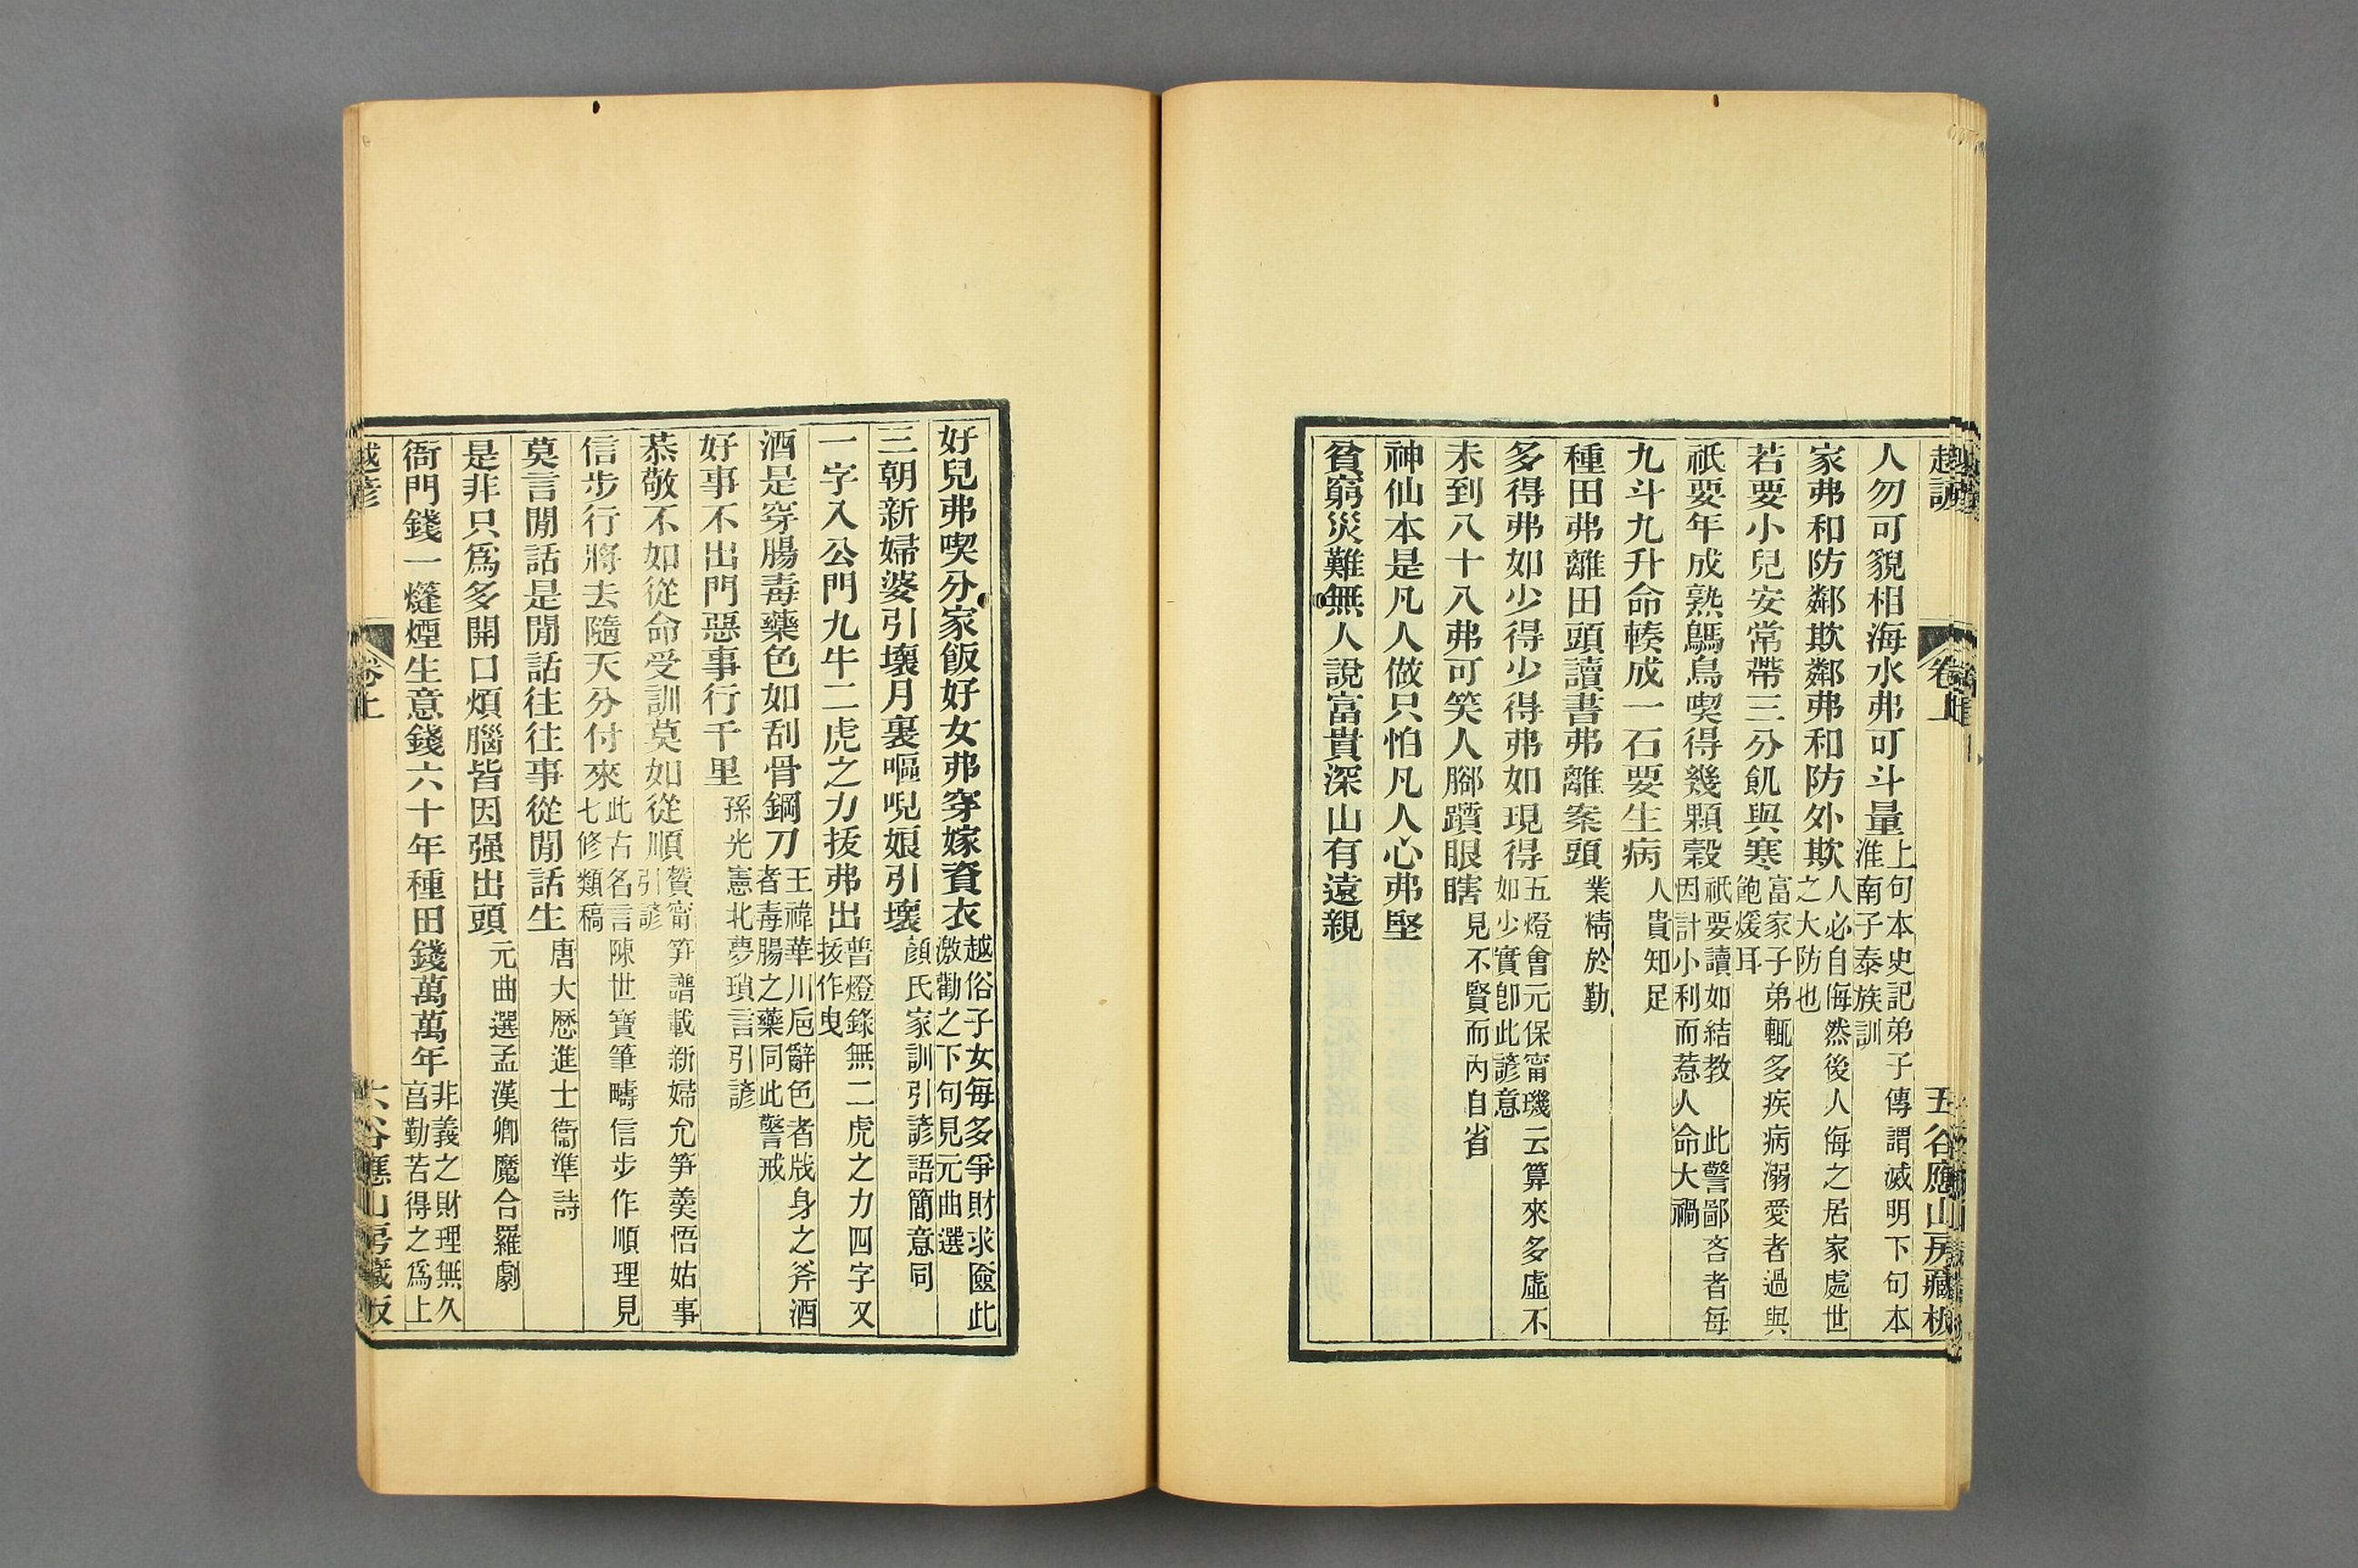 越諺 卷上 五 谷應山房藏板
人勿可貌相海水弗可斗量上句本史記弟子傳謂滅明下句本淮南子泰族訓
家弗和防鄰欺鄰弗和防外欺人必自侮然後人侮之居家處世之大防也
若要小兒安常帶三分飢與寒富家子弟輒多疾病溺愛者過與飽煖耳
祇要年成熟鷌鳥喫得幾顆穀祇要讀如結教 此警鄙吝者每因計小利而惹人命大禍
九斗九升命輳成一石要生病人貴知足
種田弗離田頭讀書弗離案頭業精於勤
多得弗如少得少得弗如現得五燈會元保甯璣云算來多虛不如少實卽此諺意
未到八十八弗可笑人腳蹟眼瞎見不賢而內自省
神仙本是凡人做只怕凡人心弗堅
貧窮災難無人說富貴深山有遠親
好兒弗喫分家飯好女弗穿嫁資衣越俗子女每多爭財求匳此激勸之下句見元曲選
三朝新婦婆引壞月裏嘔唲娘引壞顏氏家訓引諺語簡意同
一字入公門九牛二虎之力拔弗出普燈錄無二虎之力四字又拔作曳
酒是穿腸毒藥色如刮骨鋼刀王褘華川巵辭色者戕身之斧酒者毒腸之藥同此警戒
好事不出門惡事行千里孫光憲北夢瑣言引諺
恭敬不如從命受訓莫如從順贊甯筍譜載新婦允筍羹悟姑事引諺
信步行將去隨天分付來此古名言陳世寶筆疇信步作順理見七修類稿
莫言閒話是閒話往往事從閒話生唐大厯進士衞準詩
是非只爲多開口煩腦皆因强出頭元曲選孟漢卿魔合羅劇
衙門錢一熢煙生意錢六十年種田錢萬萬年非義之財理無久言勤苦得之爲上
越諺 卷上 六 谷應山房藏板